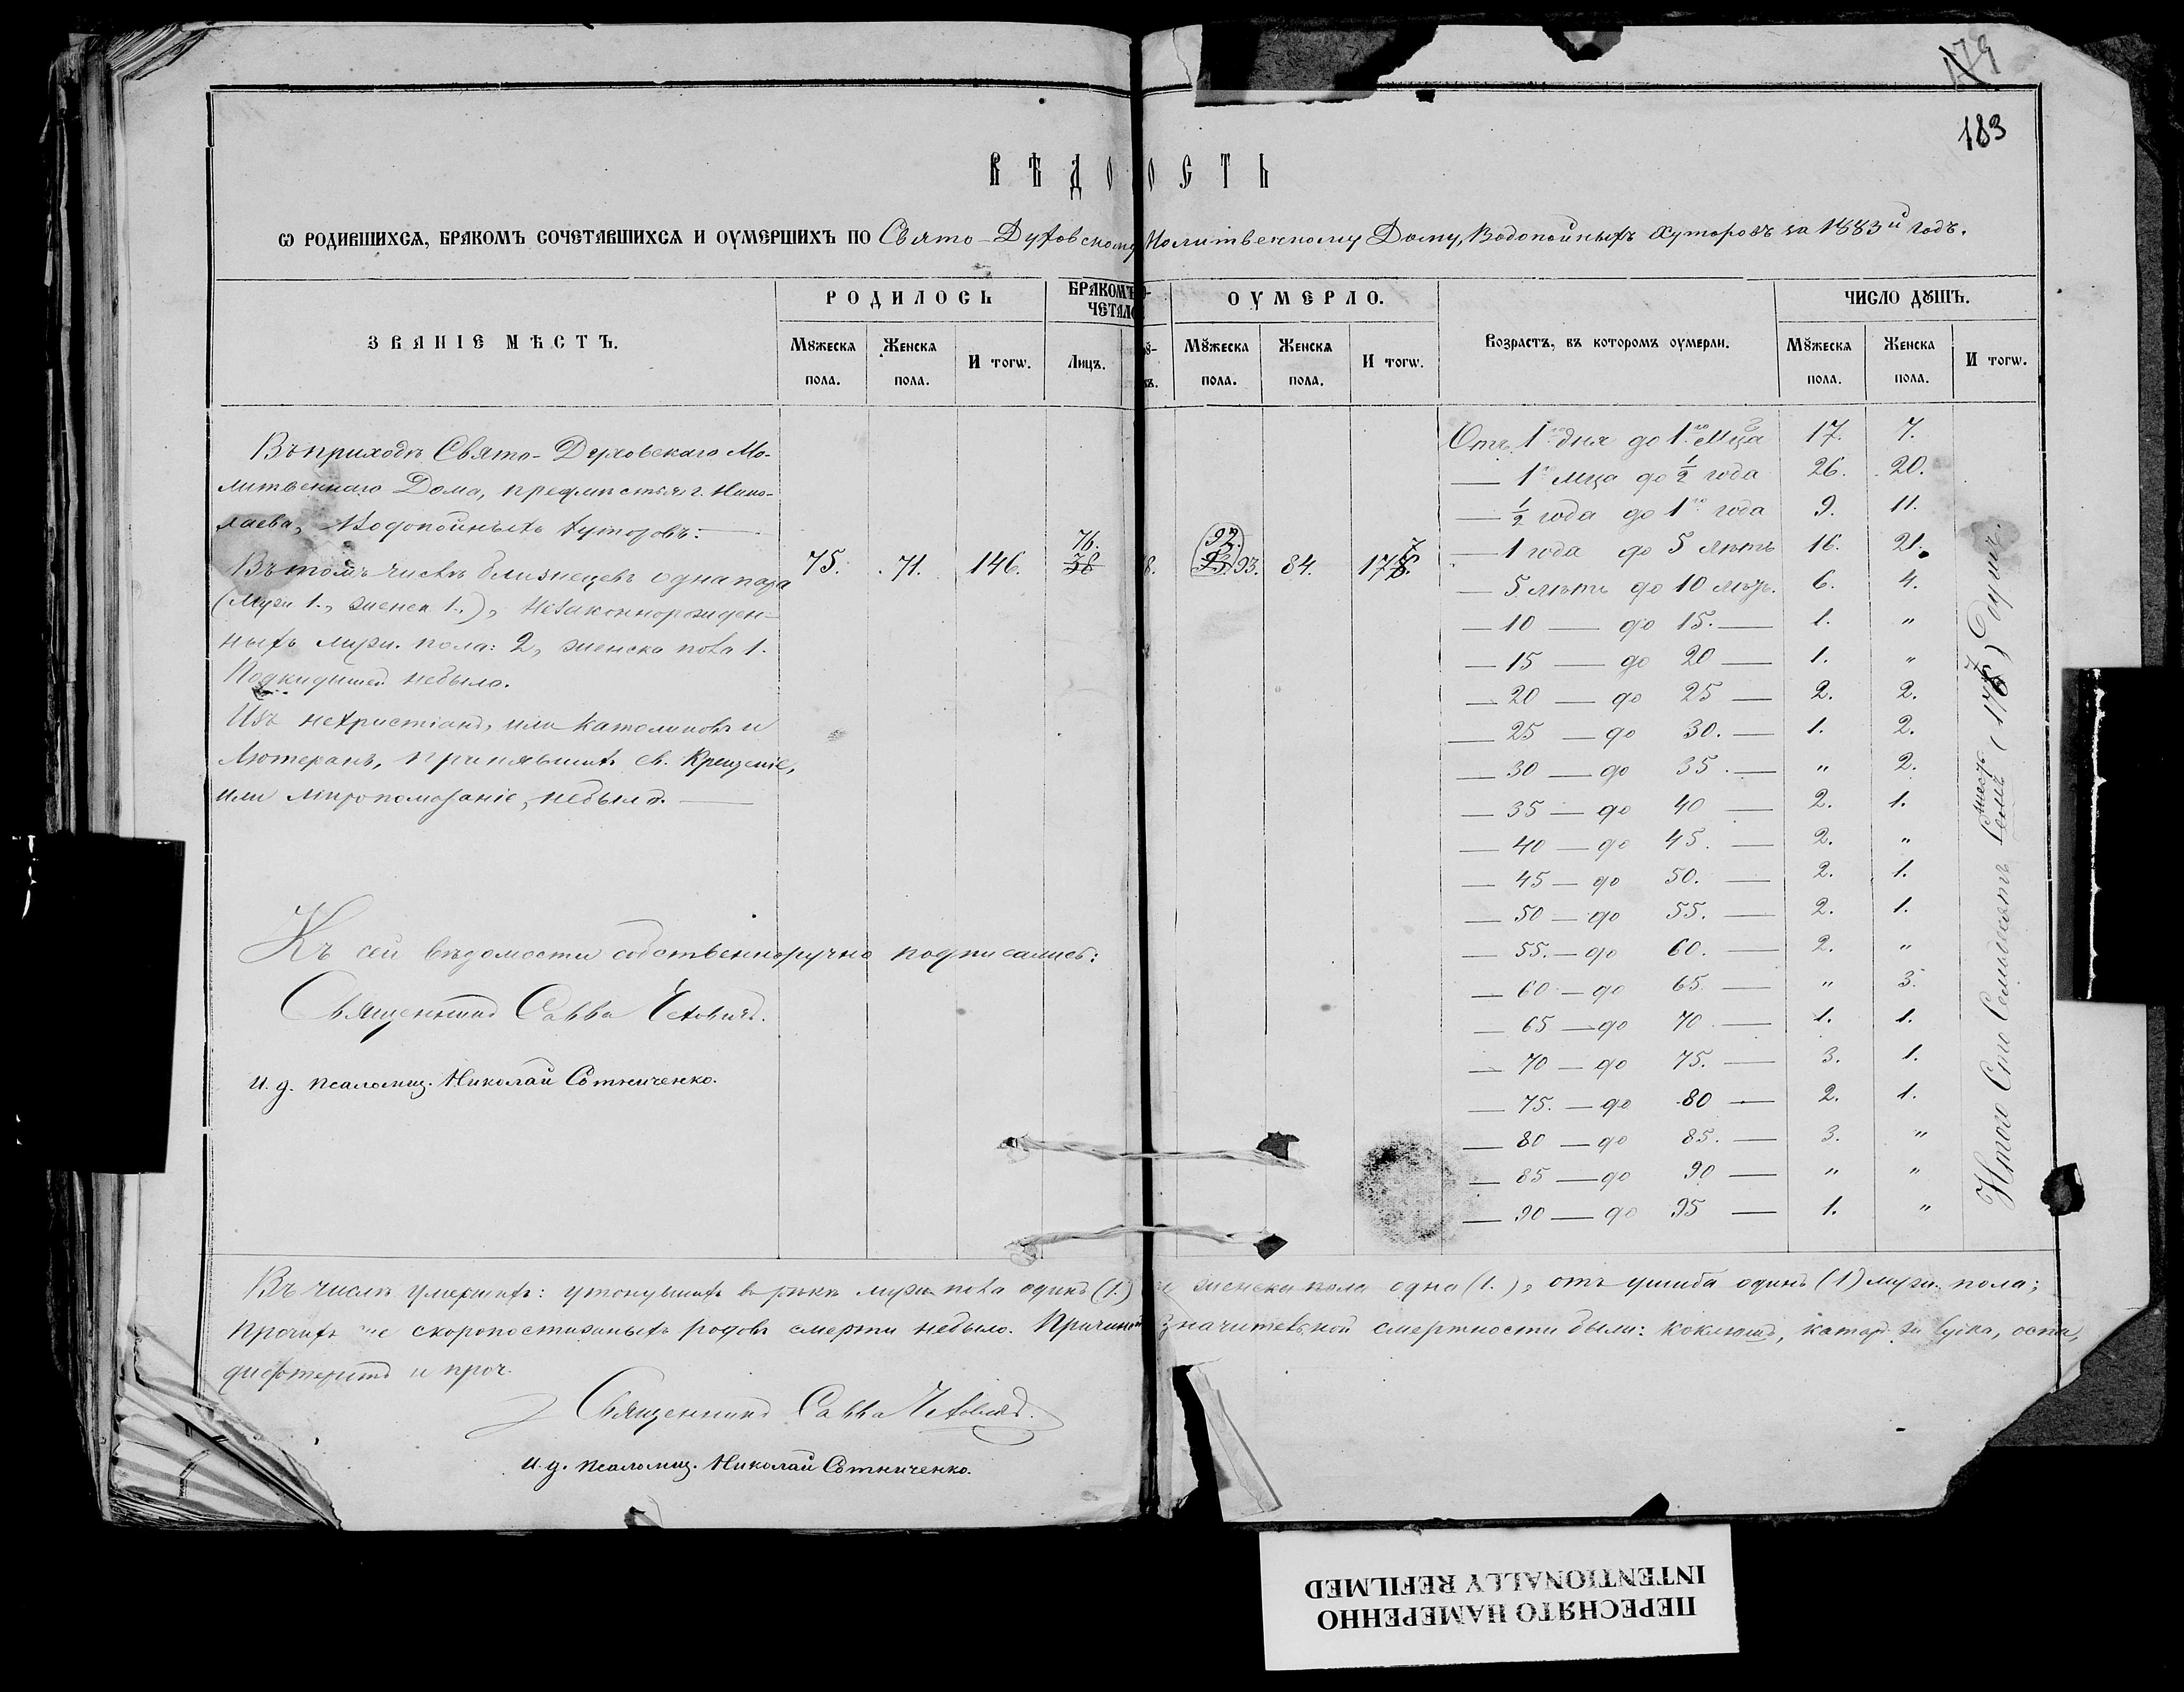 179
183
ВѢДО ОСТЬ
Ѡ РОДИВШИХСѦ, БРАКОМЪ СОЧЕТАВШИХСѦ И ОУМЕРШИХЪ ПО Свято-Духовскому Молитвенному Дому, Водопойныхъ Хуторовъ за 1883й годъ.
ЗВАНІЕ МѢСТЪ.
РОДИЛОСЬ
БРАКОМЪ О-
ЧЕТАЛО
ОУМЕРЛО.
Возрастъ, въ которомъ оумерли.
ЧИСЛО ДꙊШЪ.
Мꙋжеска пола.
Женска пола.
И тогѡ.
Лицъ.
Мꙋжеска пола.
Женска пола.
И тогѡ.
Мꙋжеска пола.
Женска пола.
И тогѡ.
Въ приходѣ Свято-Духовскаго Мо-
литвеннаго Дома, предмѣстья г. Нико-
лаева, Водопойныхъ хуторовъ:
Въ томъ числѣ близнецовъ одна пара
(Мужи 1., женск 1.), Незаконнорожден-
ныхъ мужи. пола: 2, женска пола 1.
Подкидышей небыло.
Изъ нехристіанъ, или Католиковъ и
Лютеранъ, принявшихъ св. Крещеніе,
или мѵропомазаніе, небыло.
75. 71. 146. 76. 38 8. 92. 93. 84. 177.
Отъ 1го дня до 1го Мца 17. 7.
— 1го мца до ½ года 26. 20.
— ½ года до 1го года 9. 11.
— 1 года до 5 лѣтъ 16. 21.
— 5 лѣтъ до 10 лѣтъ. 6. 4.
— 10 — до 15. — 1. "
— 15 — до 20 — 1. "
— 20 — до 25 — 2. 2.
— 25 — до 30. — 1. 2.
— 30 — до 35. — " 2.
— 35 — до 40 — 2. 1.
— 40 — до 45. — 2. "
— 45 — до 50. — 2. 1.
— 50 — до 55. — 2. 1.
— 55. — до 60. — 2. "
— 60 — до 65. — " 3.
— 65 — до 70. — 1. 1.
— 70 — до 75. — 3. 1.
— 75. — до 80 — 2. 1.
— 80 — до 85. — 3. "
— 85 — до 90 — " "
— 90 — до 95 — 1. "
Итого Сто Семьдесятъ Семь (177) Душъ.
Къ сей вѣдомости собственноручно подписались:
Священникъ Савва
И. д. псаломщ. Николай Сотниченко.
Въ числѣ умершихъ: утонувшихъ въ рѣкѣ мужи пола одинъ (1.) и женска пола одна (1.), отъ ушиба одинъ (1) мужи. пола;
Прочихъ же скоропостижныхъ родовъ смерти небыло. Причиной значительной смертности были: коклюшъ, катаръ оспа,
дифтеритъ и проч.
Священникъ Савва
И. д. псаломщ. Николай Сотниченко.
ПЕРЕСНЯТО НАМЕРЕННО
INTENTIONALLY REFILMED